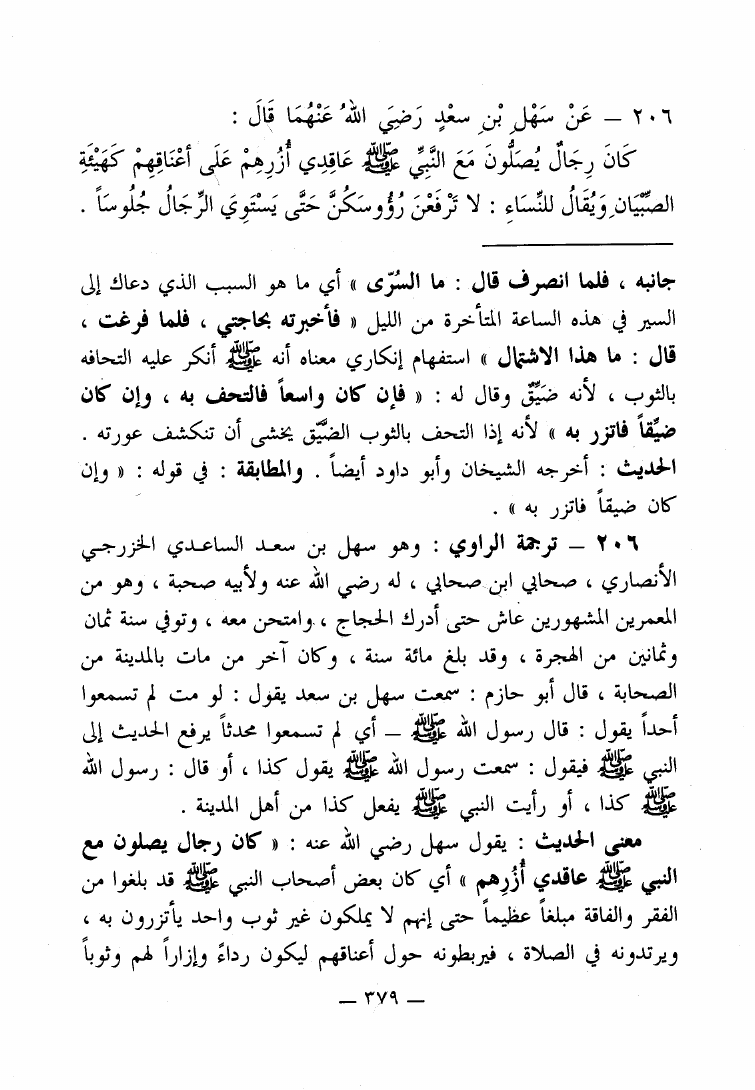 ٢٠٦ — عَنْ سَهْلِ بْنِ سعْدٍ رَضِيَ اللهُ عَنْهُمَا قَالَ :
كَانَ رِجَالٌ يُصَلُّونَ مَعَ النَّبِيِّ ﷺ عَاقِدِي أُزُرِهِمْ عَلَى أعْنَاقِهِمْ كَهَيْئَةِ
الصِّبْيَانِ وَيُقَالُ للنِّسَاءِ : لا تَرْفَعْنَ رُؤُوسَكُنَّ حَتَّى يَسْتَوِيَ الرِّجَالُ جُلُوسَاً .
جانبه ، فلما انصرف قال : ما السُرّى » أي ما هو السبب الذي دعاك إلى
السير في هذه الساعة المتأخرة من الليل « فأخبرته بحاجتي ، فلما فرغت ،
قال : ما هذا الاشتمال » استفهام إنكاري معناه أنه ﷺ أنكر عليه التحافه
بالثوب ، لأنه ضَيِّقٌ وقال له : « فإن كان واسعاً فالتحف به ، وإن كان
ضيِّقاً فاتزر به » لأنه إذا التحف بالثوب الضيِّق يخشى أن تنكشف عورته .
الحديث : أخرجه الشيخان وأبو داود أيضاً . والمطابقة : في قوله : « وإن
كان ضيقاً فاتزر به » .
٢٠٦ — ترجمة الراوي : وهو سهل بن سعد الساعدي الخزرجي
الأنصاري ، صحابي ابن صحابي ، له رضي الله عنه ولأبيه صحبة ، وهو من
المعمرين المشهورين عاش حتى أدرك الحجاج ، وامتحن معه ، وتوفي سنة ثمان
وثمانين من الهجرة ، وقد بلغ مائة سنة ، وكان آخر من مات بالمدينة من
الصحابة ، قال أبو حازم : سمعت سهل بن سعد يقول : لو مت لم تسمعوا
أحداً يقول : قال رسول الله ﷺ — أي لم تسمعوا محدثاً يرفع الحديث إلى
النبي ﷺ فيقول : سمعت رسول الله ﷺ يقول كذا ، أو قال : رسول الله
ﷺ كذا ، أو رأيت النبي ﷺ يفعل كذا من أهل المدينة .
معنى الحديث : يقول سهل رضي الله عنه : « كان رجال يصلون مع
النبي ﷺ عاقدي أُزُرِهم » أي كان بعض أصحاب النبي ﷺ قد بلغوا من
الفقر والفاقة مبلغاً عظيماً حتى إنهم لا يملكون غير ثوب واحد يأتزرون به ،
ويرتدونه في الصلاة ، فيربطونه حول أعناقهم ليكون رداءً وإزاراً لهم وثوباً
— ٣٧٩ —